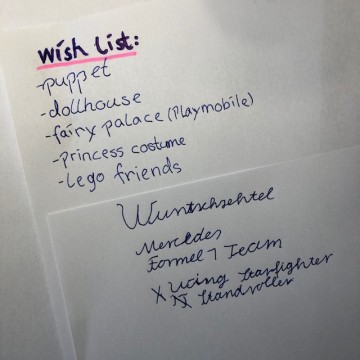 wish list:
-puppet
-dollhouse
-fairy palace (Playmobile)
-princess costume
-lego friends
Wuntschzehtel
Mercedes
Formel 1 Team
X Wing Starfighter
Standroller